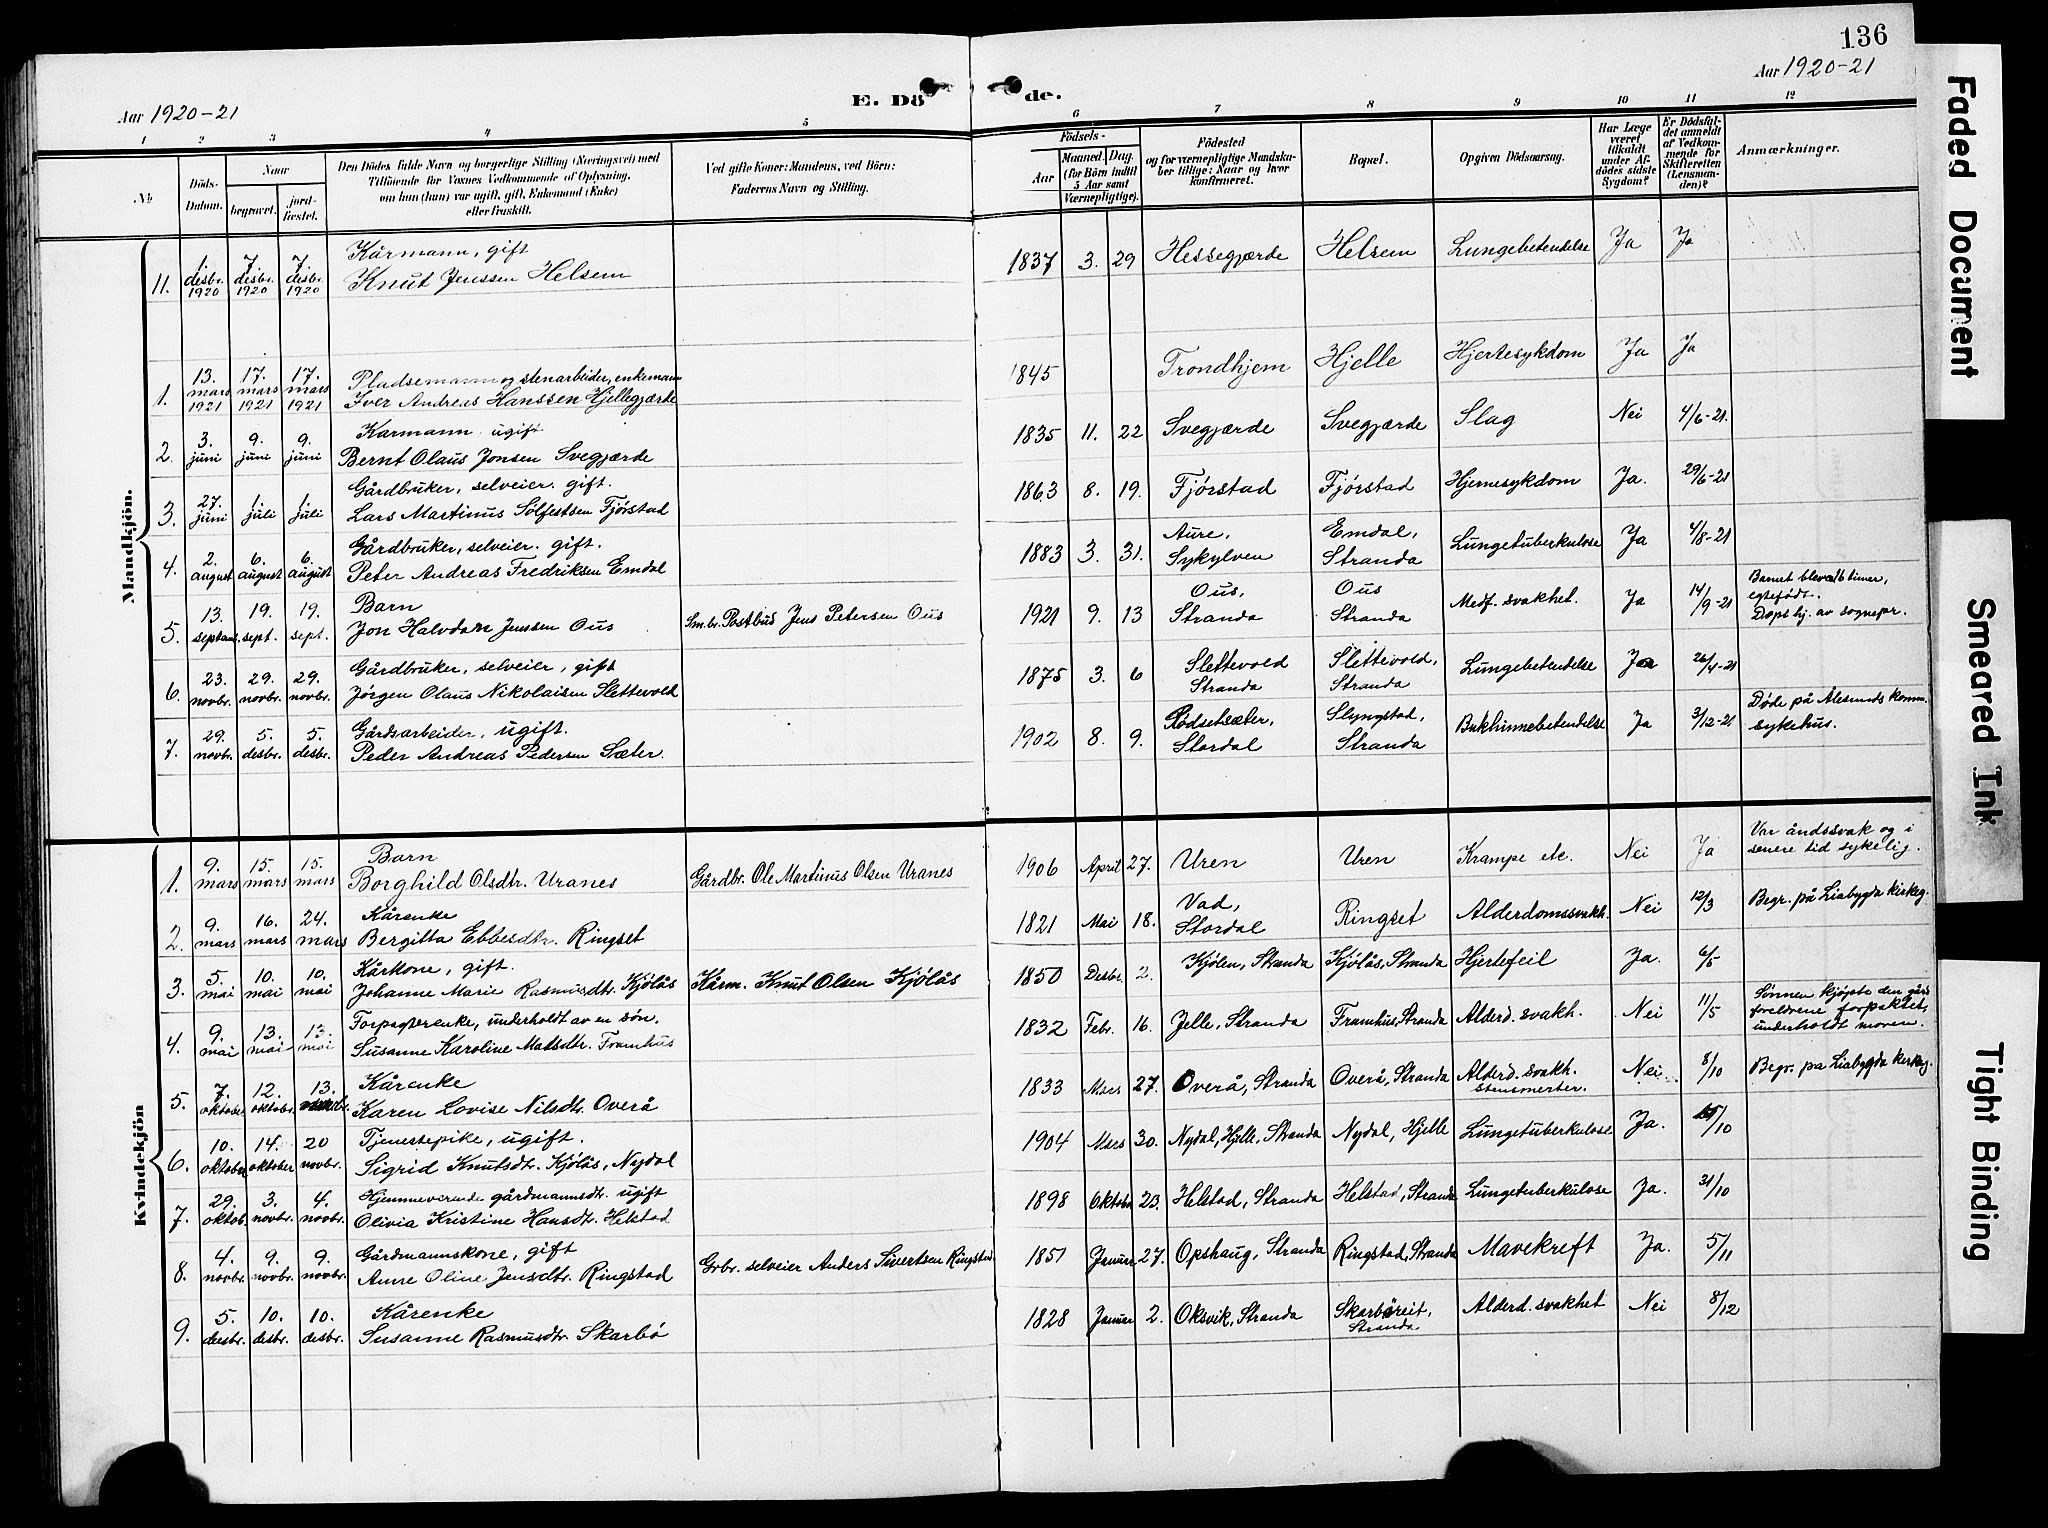 136
Aar 1920-21
Aar 1920-21
E. Dö de.
1 2 3 4 5 6 7 8 9 10 11 12
№
Döds-Datum.
Naar
begravet.
jord-fæstet.
Den Dödes fulde Navn og borgerlige Stilling (Næringsvei) med
Tilföiende for Voxnes Vedkommende af Oplysning,
om han (hun) var ugift, gift, Enkemand (Enke)
eller fraskilt.
Ved gifte Koner: Mandens, ved Börn:
Faderens Navn og Stilling.
Födsels-
Aar
Maaned. Dag.
(for Börn indtil
5 Aar samt
Værnepligtige).
Födested
og for værnepligtige Mandska-
ber tillige: Naar og hvor
konfirmeret.
Bopæl.
Opgiven Dödsaarsag.
Har Læge
været
tilkaldt
under Af-
dödes sidste
Sygdom?
Er Dödsfal-
det anmeldt
af Vedkom-
mende for
Skifteretten
(Lensman-
den)?
Anmærkninger.
Mandkjön.
11. 1. desbr. 1920 7. desbr. 1920 7. desbr. 1920 Kårmann, gift
Knut Jenssen Helsem 1837 3. 29 Hessegjærde Helsem Lungebetendelse Ja Ja
1. 13. mars 1921 17. mars 1921 17. mars 1921 Pladsemann og stenarbeider, enkemann
Iver Andreas Hanssen Hjellegjærde 1845 Trondhjem Hjelle Hjertesykdom Ja Ja
2. 3. juni 9. juni 9. juni Karmann ugift
Bernt Olaus Jonsen Svegjærde 1835 11. 22 Svegjærde Svegjærde Slag Nei 4/6-21.
3. 27. juni 1 juli 1 juli Gårdbruker, selveier. gift.
Lars Martinus Sølfestsen Fjørstad 1863 8. 19. Fjørstad Fjørstad Hjernesykdom Ja. 29/6-21
4. 2. august 6. august 6. august Gårdbruker, selveier. gift.
Peter Andreas Fredriksen Emdal 1883 3. 31. Aure, Sykylven Emdal, Stranda Lungetuberkulose Ja 4/8-21
5. 13. 19. sept. 19. sept. Barn
Jon Halvdan Jenssen Ous Sm.br. Postbud Jens Petersen Ous 1921 9. 13 Ous, Stranda Ous Stranda Medf. svakhet. Ja 14/9-21 Barnet blev 16 timer,
egtefødt.
Døpt hj. av sognepr.
6. 23. novbr. 29. novbr. 29. novbr. Gårdbruker, selveier, gift
Jørgen Olaus Nikolaisen Slettevold 1875 3. 6 Slettevold Stranda Slettevold, Stranda Lungebetendelse Ja 26/4-21
7. 29. novbr. 5. desbr. 5. desbr. Gårdsarbeider, ugift.
Peder Andreas Pedersen Sæter. 1902 8. 9. Rødsetsæter, Stordal Slyngstad, Stranda Bukhinnebetendelse Ja 3/12-21 Døde på Ålesunds komm.
sykehus.
Kvindekjön
1. 9. mars 15. mars 15. mars Barn
Borghild Olsdtr. Uranes Gårdbr. Ole Martinus Olsen Uranes 1906 April 27. Uren Uren Krampe etc. Nei Ja Var åndssvak og i
senere tid sykelig.
2. 9. mars 16. mars 24. mars Kårenke
Bergitta Ebbesdtr. Ringset 1821 Mai 18. Vad, Stordal Ringset Alderdomssvakh. Nei 12/3 Begr. på Liabygda kirkeg.
3. 5. mai 10. mai 10. mai Kårkone, gift.
Johanne Marie Rasmusdtr. Kjølås Kårm. Knut Olsen Kjølås 1850 Desbr. 2. Kjølen, Stranda Kjølås, Stranda Hjertefeil Ja. 6/5
4. 9. mai 13. mai 13. mai Forpagterenke, underholdt av en søn.
Susanne Karoline Matsdtr. Framhus 1832 Febr. 16. Jelle, Stranda Framhus, Stranda Alderd. svakh. Nei 11/5 Sønnen kjøpte den gård
foreldrene forpaktet,
underholdt moren.
5. 7. oktober 12. oktobr. 13. Kårenke
Karen Lovise Nilsdtr. Overå 1833 Mars 27. Overå, Stranda Overå, Stranda Alderd. svakh.
stensmerter. Nei 8/10 Begr. pa Liabygda kirkeg.
6. 10. oktober 14. oktober 20 novbr. Tjenestepike, ugift.
Sigrid Knutsdtr. Kjølås, Nydal 1904 Mars 30. Nydal, Hjelle, Stranda Nydal, Hjelle Lungetuberkulose Ja. /10
7. 29. oktob. 3. novbr. 4. novbr. Hjemmeværende gårdmannsdtr. ugift
Olivia Kristine Hansdtr. Helstad 1898 Oktobr. 23. Helstad, Stranda Helstad, Stranda Lungetuberkulose Ja. 31/10
8. 4. novbr. 9. novbr. 9. novbr. Gårdmannskone, gift
Anne Oline Jensdtr. Ringstad Grbr. selveier Anders Sivertsen Ringstad 1851 Januar 27. Opshaug, Stranda Ringstad, Stranda Mavekreft Ja. 5/11
9. 5. desbr. 10. desbr. 10. desbr. Kårenke
Susanne Rasmusdtr. Skarbø 1828 Januar 2. Oksvik, Stranda Skarbøreit, Stranda Alderd. svakhet Nei 8/12
Faded Document
Smeared Ink
Tight Binding